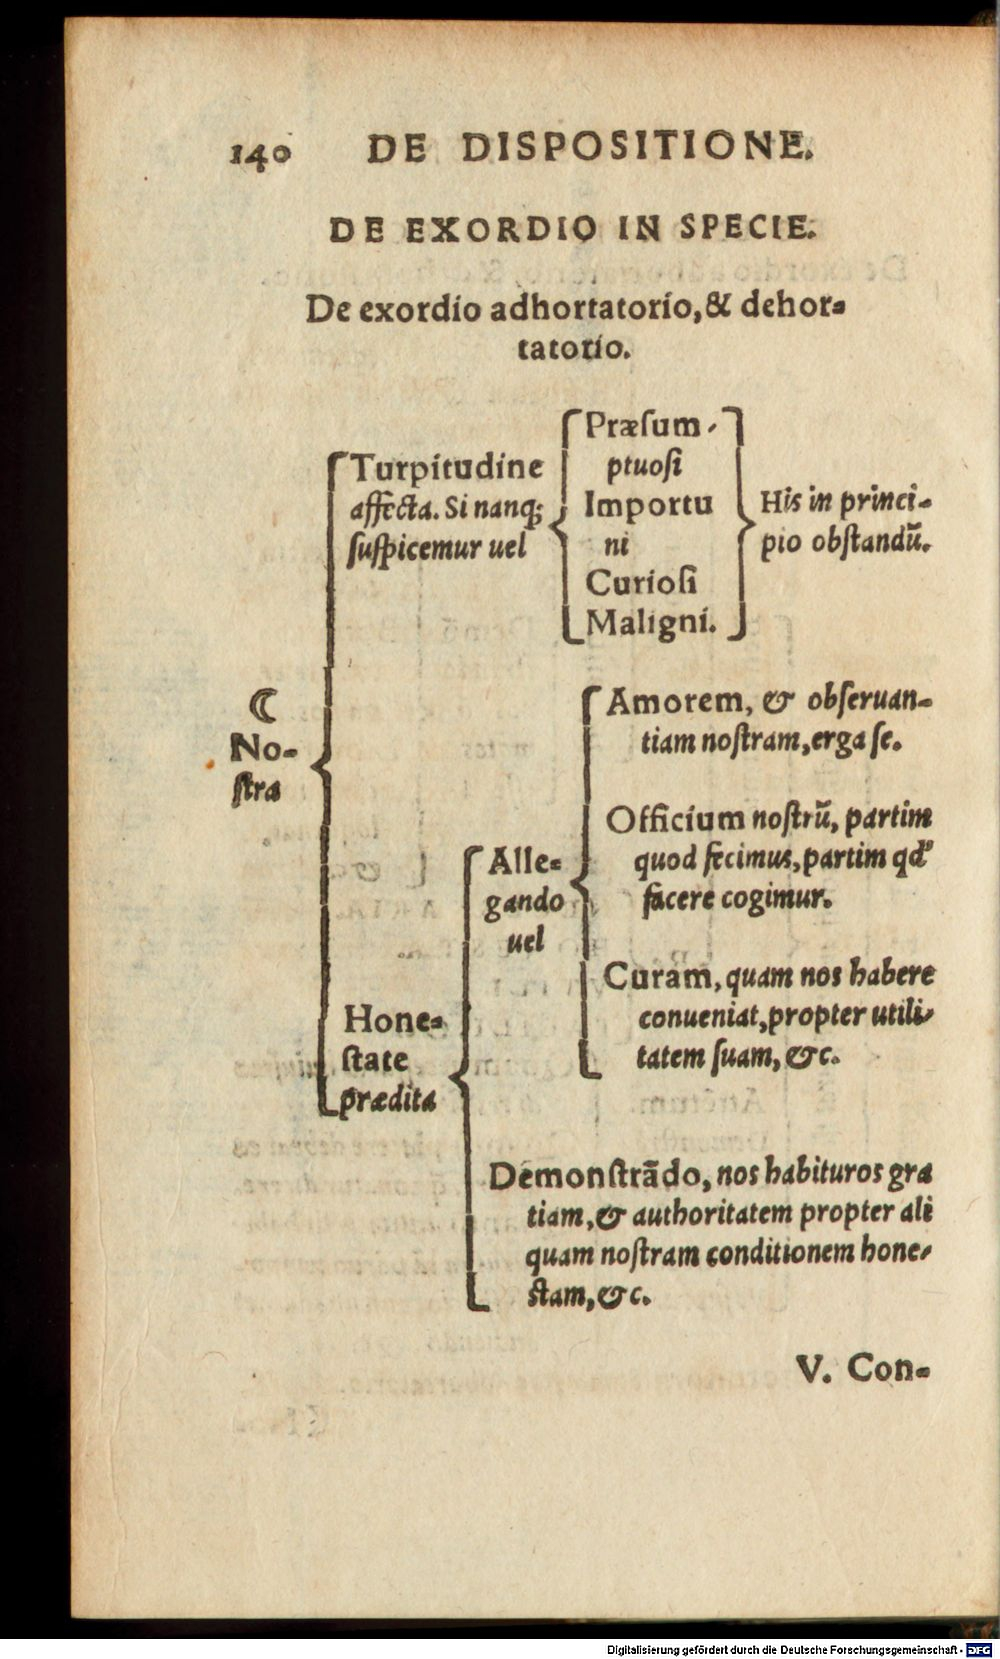 140 DE DISPOSITIONE.
DE EXORDIO IN SPECIE.
De exordio adhortatorio, & dehor-
tatorio.
☾
No-
ſtra
Turpitudine
affecta. Si nanq;
ſuſpicemur uel
Præſum-
ptuoſi
Importu
ni
Curioſi
Maligni.
His in princi-
pio obſtandũ.
Hone-
ſtate
prædita
Alle-
gando
uel
Amorem, & obſeruan-
tiam noſtram, erga ſe.
Officium noſtrũ, partim
quod fecimus, partim qd'
facere cogimur.
Curam, quam nos habere
conueniat, propter utili-
tatem ſuam, &c.
Demonſtrãdo, nos habituros gra
tiam, & authoritatem propter ali
quam noſtram conditionem hone-
ſtam, &c.
V. Con-
Digitalisierung gefördert durch die Deutsche Forschungsgemeinschaft - DFG